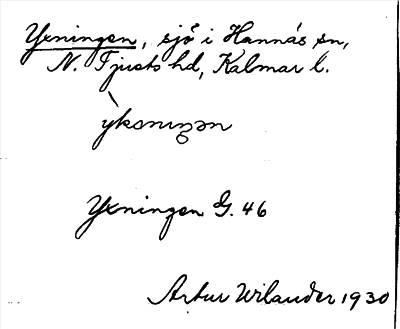 Yxningen, sjö i Hannäs sn,
N. Tjusts hd, Kalmar l.
Yxningen G. 46
Artur Wilander 1930